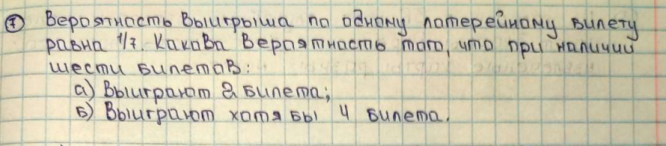 ⑦ Вероятность выигрыша по одному лотерейному билету
равна 1/7. Какова вероятность того, что при наличии
шести билетов:
а) Выиграют 2 билета;
б) Выиграют хотя бы 4 билета.